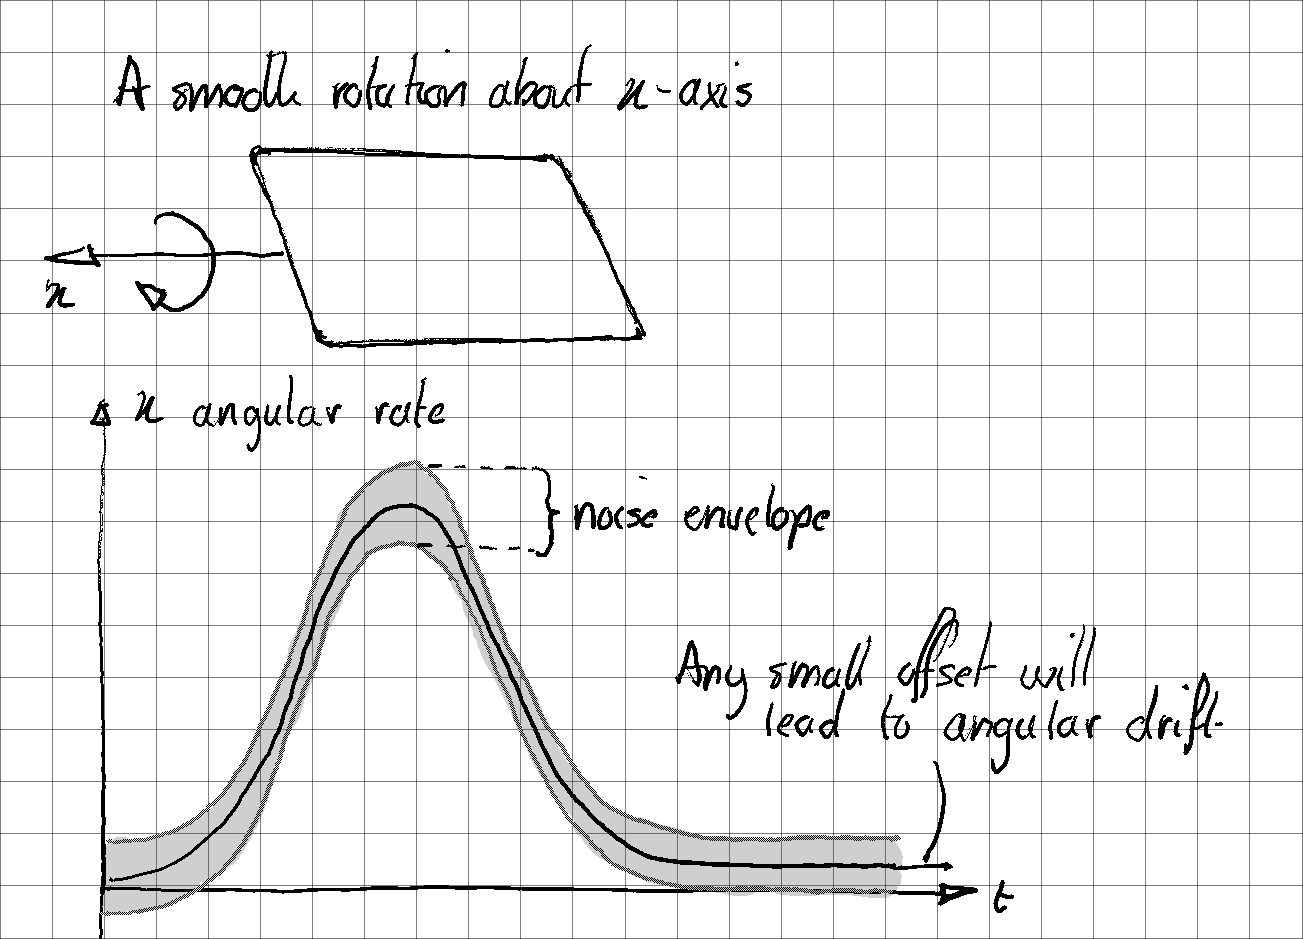 A smooth rotation about x-axis
x
x angular rate
noise envelope
Any small offset will
lead to angular drift
t